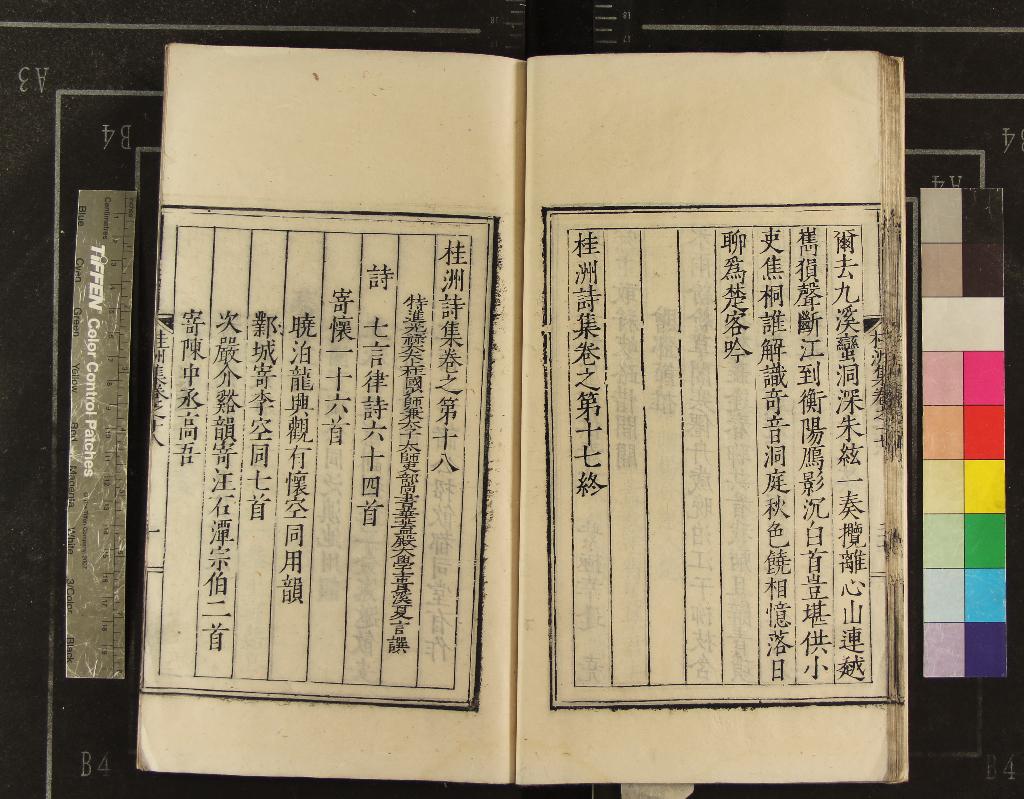 爾去九溪蠻洞深朱絃一奏攬離心山連越
嶲猨聲斷江到衡陽鴈影沉白首豈堪供小
吏焦桐誰解識奇音洞庭秋色饒相憶落日
聊爲楚客吟
桂洲詩集卷之第十七終
桂洲詩集卷之第十八
特進光祿大夫上柱國少師兼太子太師吏部尚書華蓋殿大學士貴溪夏言譔
詩　七言律詩六十四首
寄懷一十六首
曉泊龍興觀有懷空同用韻
鄱城寄李空同七首
次嚴介谿韻寄汪石潭宗伯二首
寄陳中丞高吾
桂洲集卷之十八
一
TIFFEN Color Control Patches
Centimetres
Blue
Cyan
Green
Yellow
Red
Magenta
White
3/Color
Black
A3
B4
B4
A4
B4
B4